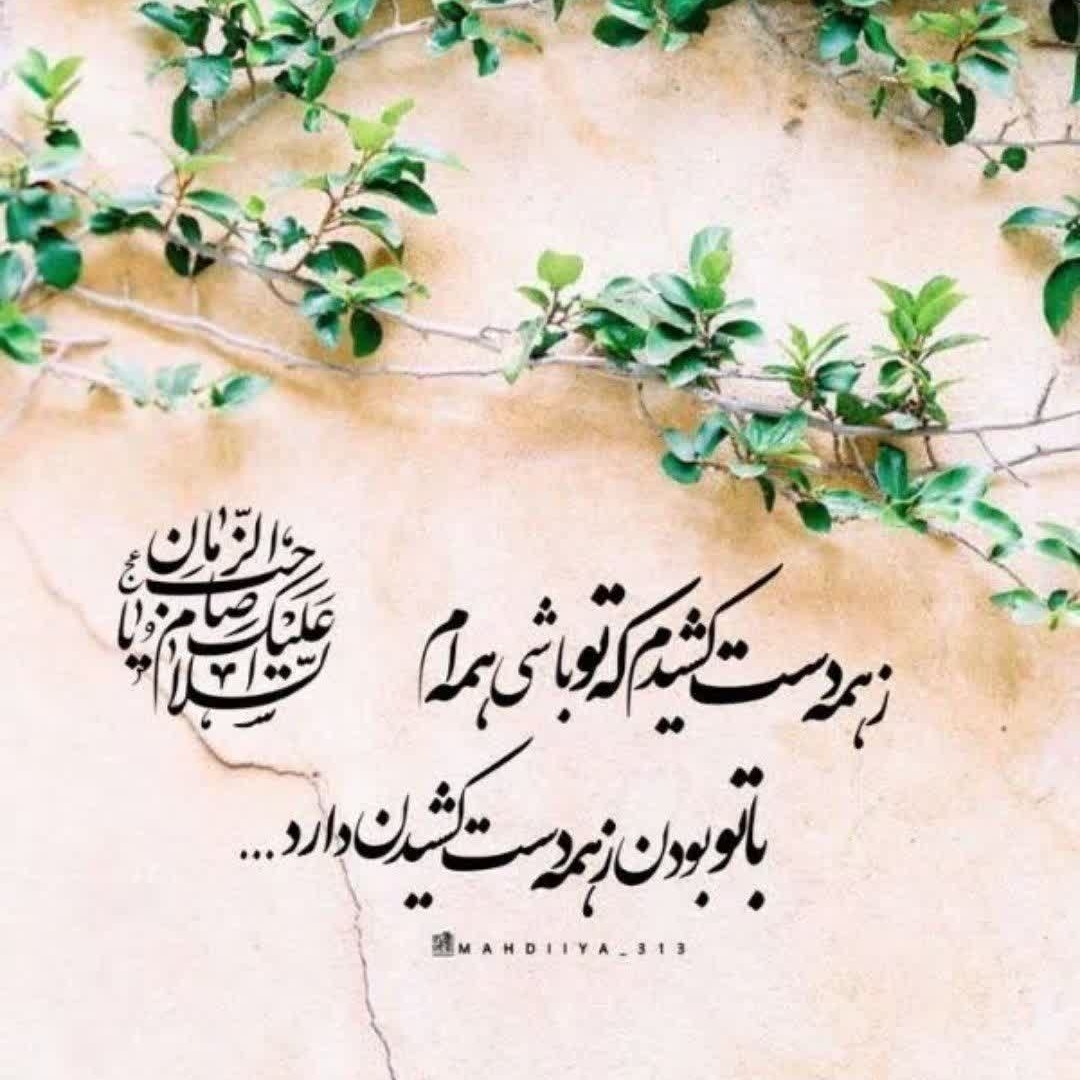 ز همه دست کشیدم که تو باشی همه ام
با تو بودن ز همه دست کشیدن دارد...
السلام علیک یا صاحب الزمان عج
MAHDIIYA_313